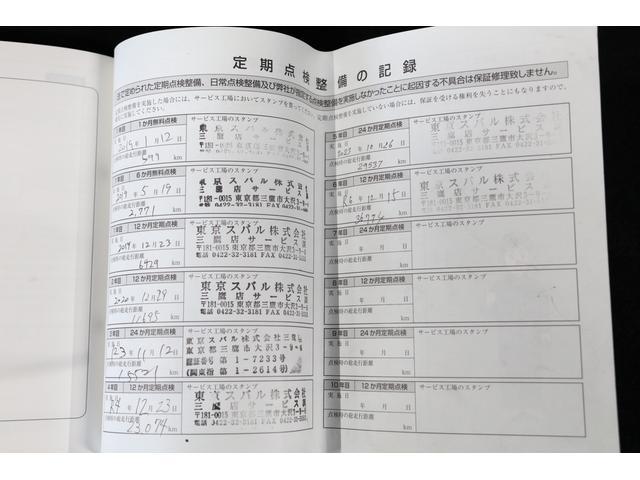 定期点検整備の記録
で定められた定期点検整備、日常点検整備及び弊社が指定する点検整備を実施しなかったことに起因する不具合は保証修理致しません。
1か月無料点検
サービス工場のスタンプ
実施日 年 1月 12日
点検時の総走行距離 599 km
東京スバル株式会
三鷹店サービス
6か月無料点検
サービス工場のスタンプ
2019年 5月 19日
2,771 km
東京スバル株式会
三鷹店サービス
〒181-0015 東京都三鷹市大沢3-
電話 0422-32-3181 FAX 0422-3
12か月定期点検
サービス工場のスタンプ
2019年 12月 23日
6929 km
東京スバル株式会社
三鷹店サービス課
〒181-0015 東京都三鷹市大沢3-9-
電話 0422-32-3181 FAX 0422-31-
2年目 12か月定期点検
サービス工場のスタンプ
2020年 12月 29日
11695 km
東京スバル株式会社
三鷹店サービス課
〒181-0015 東京都三鷹市大沢3-9
電話 0422-32-3181 FAX 0422-31-
3年目 24か月定期点検
サービス工場のスタンプ
R3年 11月 12日
15521 km
東京スバル株式会社三鷹
東京都三鷹市大沢3-9-6
認証番号 第1-7233号
(関東指 第1-2614号)
4年目 12か月定期点検
サービス工場のスタンプ
R4年 12月 23日
23,074 km
東京スバル株式会社
三鷹店サービス課
〒181-0015 東京都三鷹市大沢3-9-
電話 0422-32-3181 FAX 0422-
5年目 24か月定期点検
サービス工場のスタンプ
実施日 2023年 10月 26日
点検時の総走行距離 29537 km
6年目 12か月定期点検
サービス工場のスタンプ
実施日 R6年 12月 15日
点検時の総走行距離 36774 km
東京スバル株式会社
三鷹店サービス課
〒181-0015 東京都三鷹市大沢3-9-6
7年目 24か月定期点検
サービス工場のスタンプ
実施日 年 月 日
点検時の総走行距離 km
8年目 12か月定期点検
サービス工場のスタンプ
実施日 年 月 日
点検時の総走行距離 km
9年目 24か月定期点検
サービス工場のスタンプ
実施日 年 月 日
点検時の総走行距離 km
10年目 12か月定期点検
サービス工場のスタンプ
実施日 年 月 日
点検時の総走行距離 km